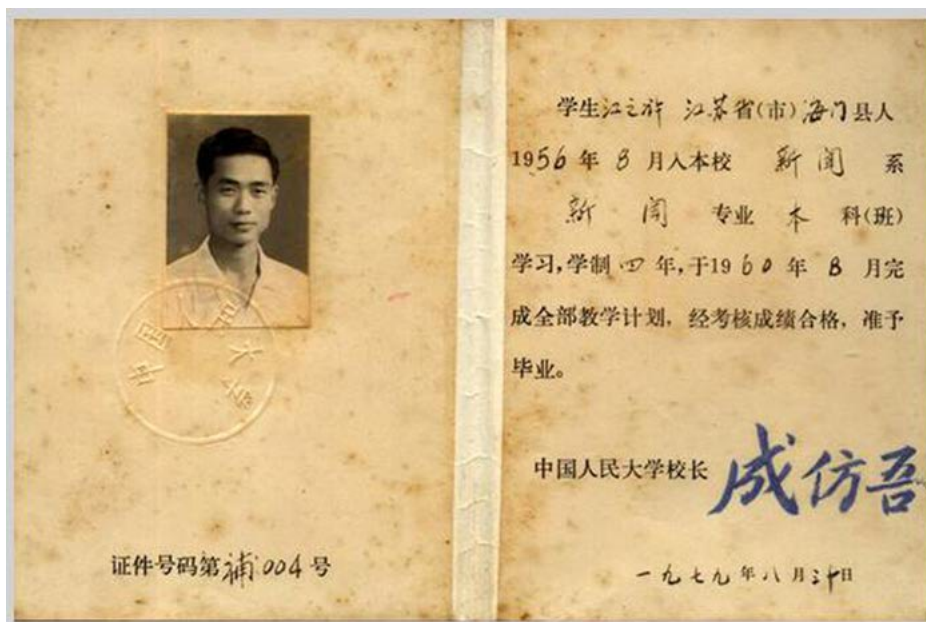 中国人民大学
证件号码第补004号
学生江之 江苏省(市)海门县人
1956年8月入本校 新闻 系
新闻 专业 本 科(班)
学习,学制四年,于1960年8月完
成全部教学计划，经考核成绩合格，准予
毕业。
中国人民大学校长 成仿吾
一九七九年八月三十日